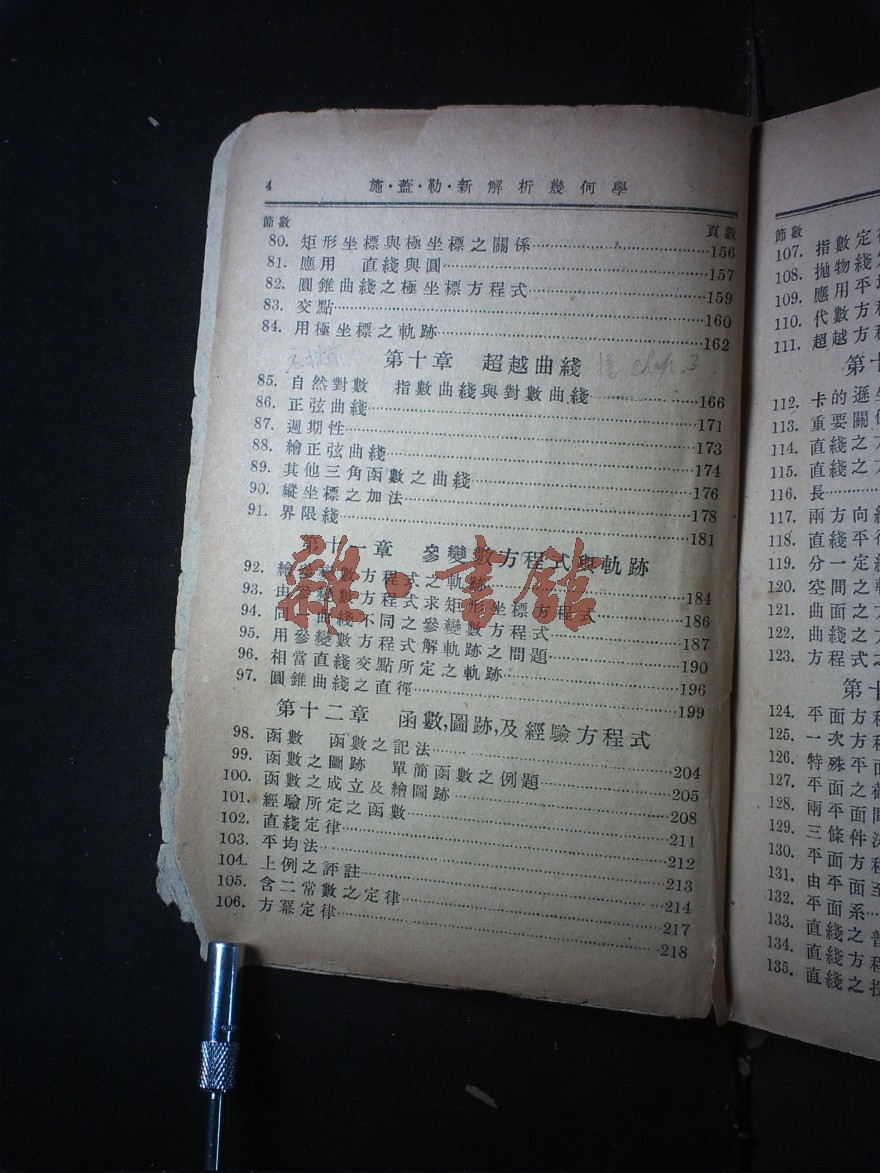 4
施·蓋·勒·新解析幾何學
節數 頁數
80. 矩形坐標與極坐標之關係 156
81. 應用 直綫與圓 157
82. 圓錐曲綫之極坐標方程式 159
83. 交點 160
84. 用極坐標之軌跡 162
第十章 超越曲綫 chap. 3
85. 自然對數 指數曲綫與對數曲綫 166
86. 正弦曲綫 171
87. 週期性 173
88. 繪正弦曲綫 174
89. 其他三角函數之曲綫 176
90. 縱坐標之加法 178
91. 界限綫 181
第十一章 參變數方程式與軌跡
92. 繪參變數方程式之軌跡 184
93. 由參變數方程式求矩形坐標方程式 186
94. 同一曲綫不同之參變數方程式 187
95. 用參變數方程式解軌跡之問題 190
96. 相當直綫交點所定之軌跡 196
97. 圓錐曲綫之直徑 199
第十二章 函數,圖跡,及經驗方程式
98. 函數 函數之記法 204
99. 函數之圖跡 單簡函數之例題 205
100. 函數之成立及繪圖跡 208
101. 經驗所定之函數 211
102. 直綫定律 212
103. 平均法 213
104. 上例之評註 214
105. 含二常數之定律 217
106. 方冪定律 218
雜·書館
節數
107. 指數定
108. 拋物綫
109. 應用平
110. 代數方程
111. 超越方
第十
112. 卡的遜
113. 重要關
114. 直綫之
115. 直綫之
116. 長
117. 兩方向
118. 直綫平
119. 分一定
120. 空間之
121. 曲面之
122. 曲綫之
123. 方程式之
第十
124. 平面方
125. 一次方
126. 特殊平
127. 平面之
128. 兩平面
129. 三條件
130. 平面方
131. 由平面至
132. 平面系
133. 直綫之普
134. 直綫方程
135. 直綫之